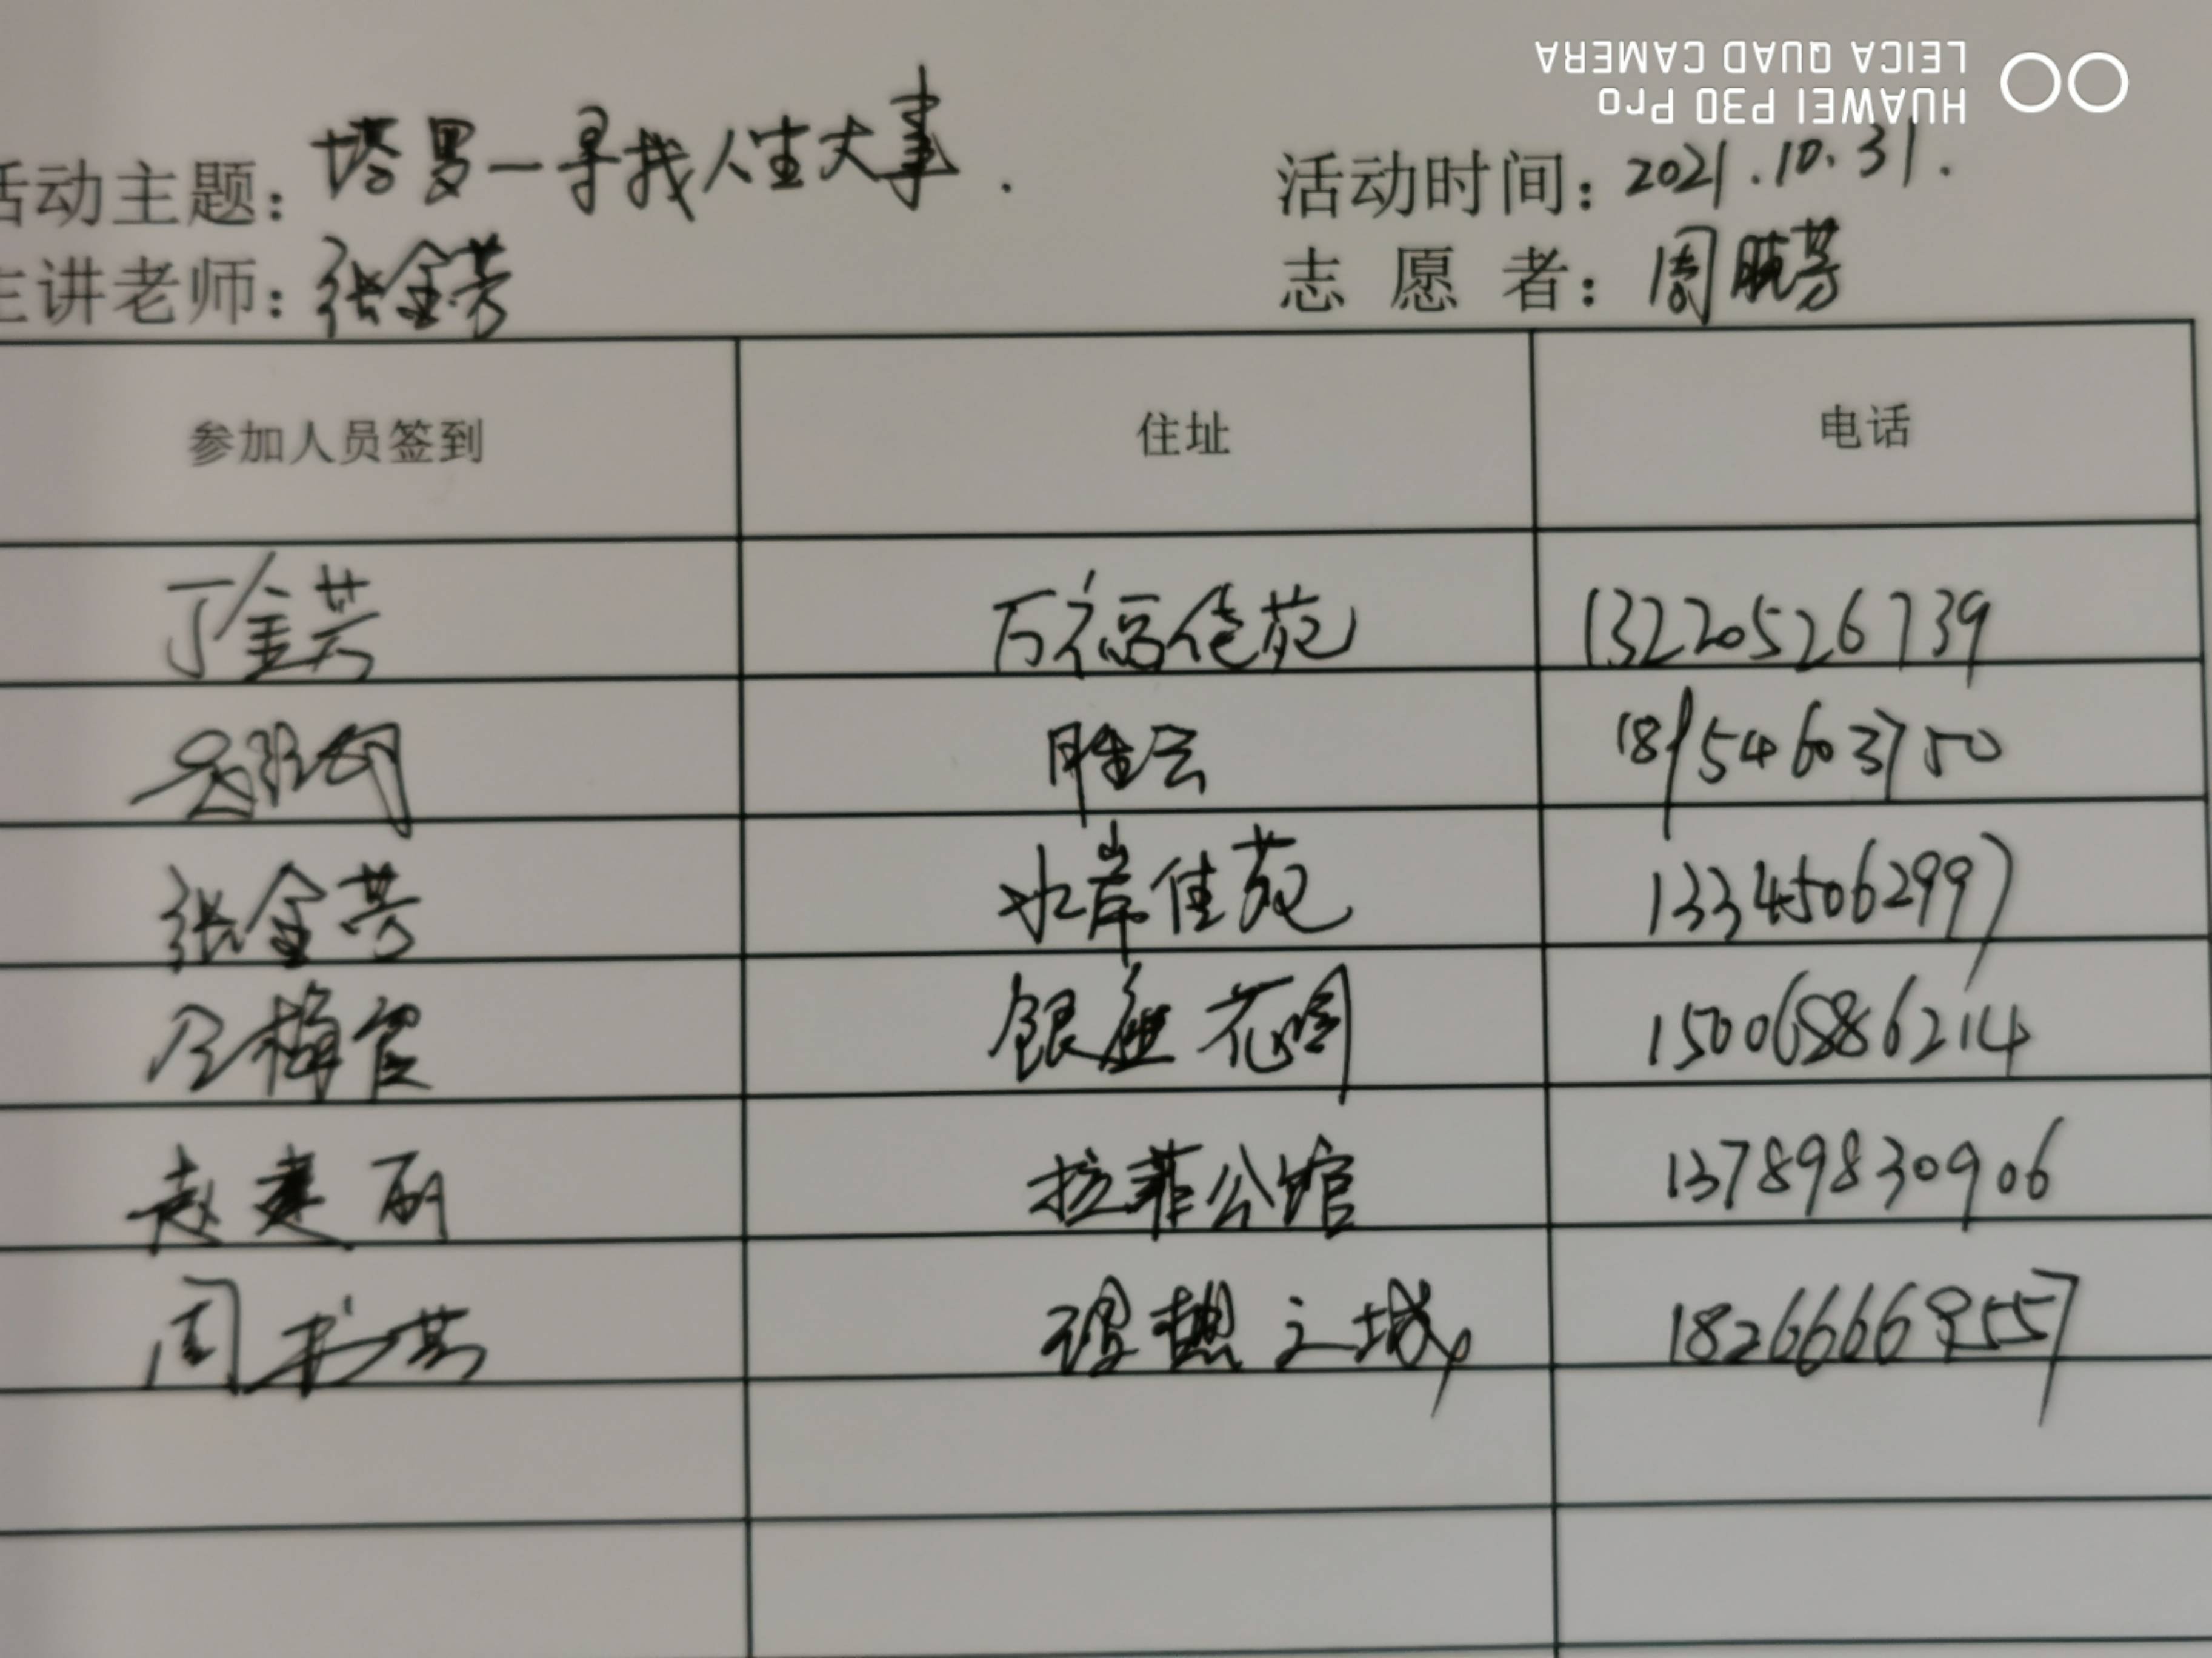 HUAWEI P30 Pro
LEICA QUAD CAMERA
活动主题：塔罗—寻找人生大事. 活动时间：2021.10.31.
主讲老师：张金芳 志愿者：周 芳
参加人员签到 住址 电话
丁金芳 万福佳苑 13220526739
胜宏 18954603750
张金芳 水岸佳苑 13345062997
银座花园 15006886214
赵建丽 拉菲公馆 13789830906
周书芬 理想之城 18266668557